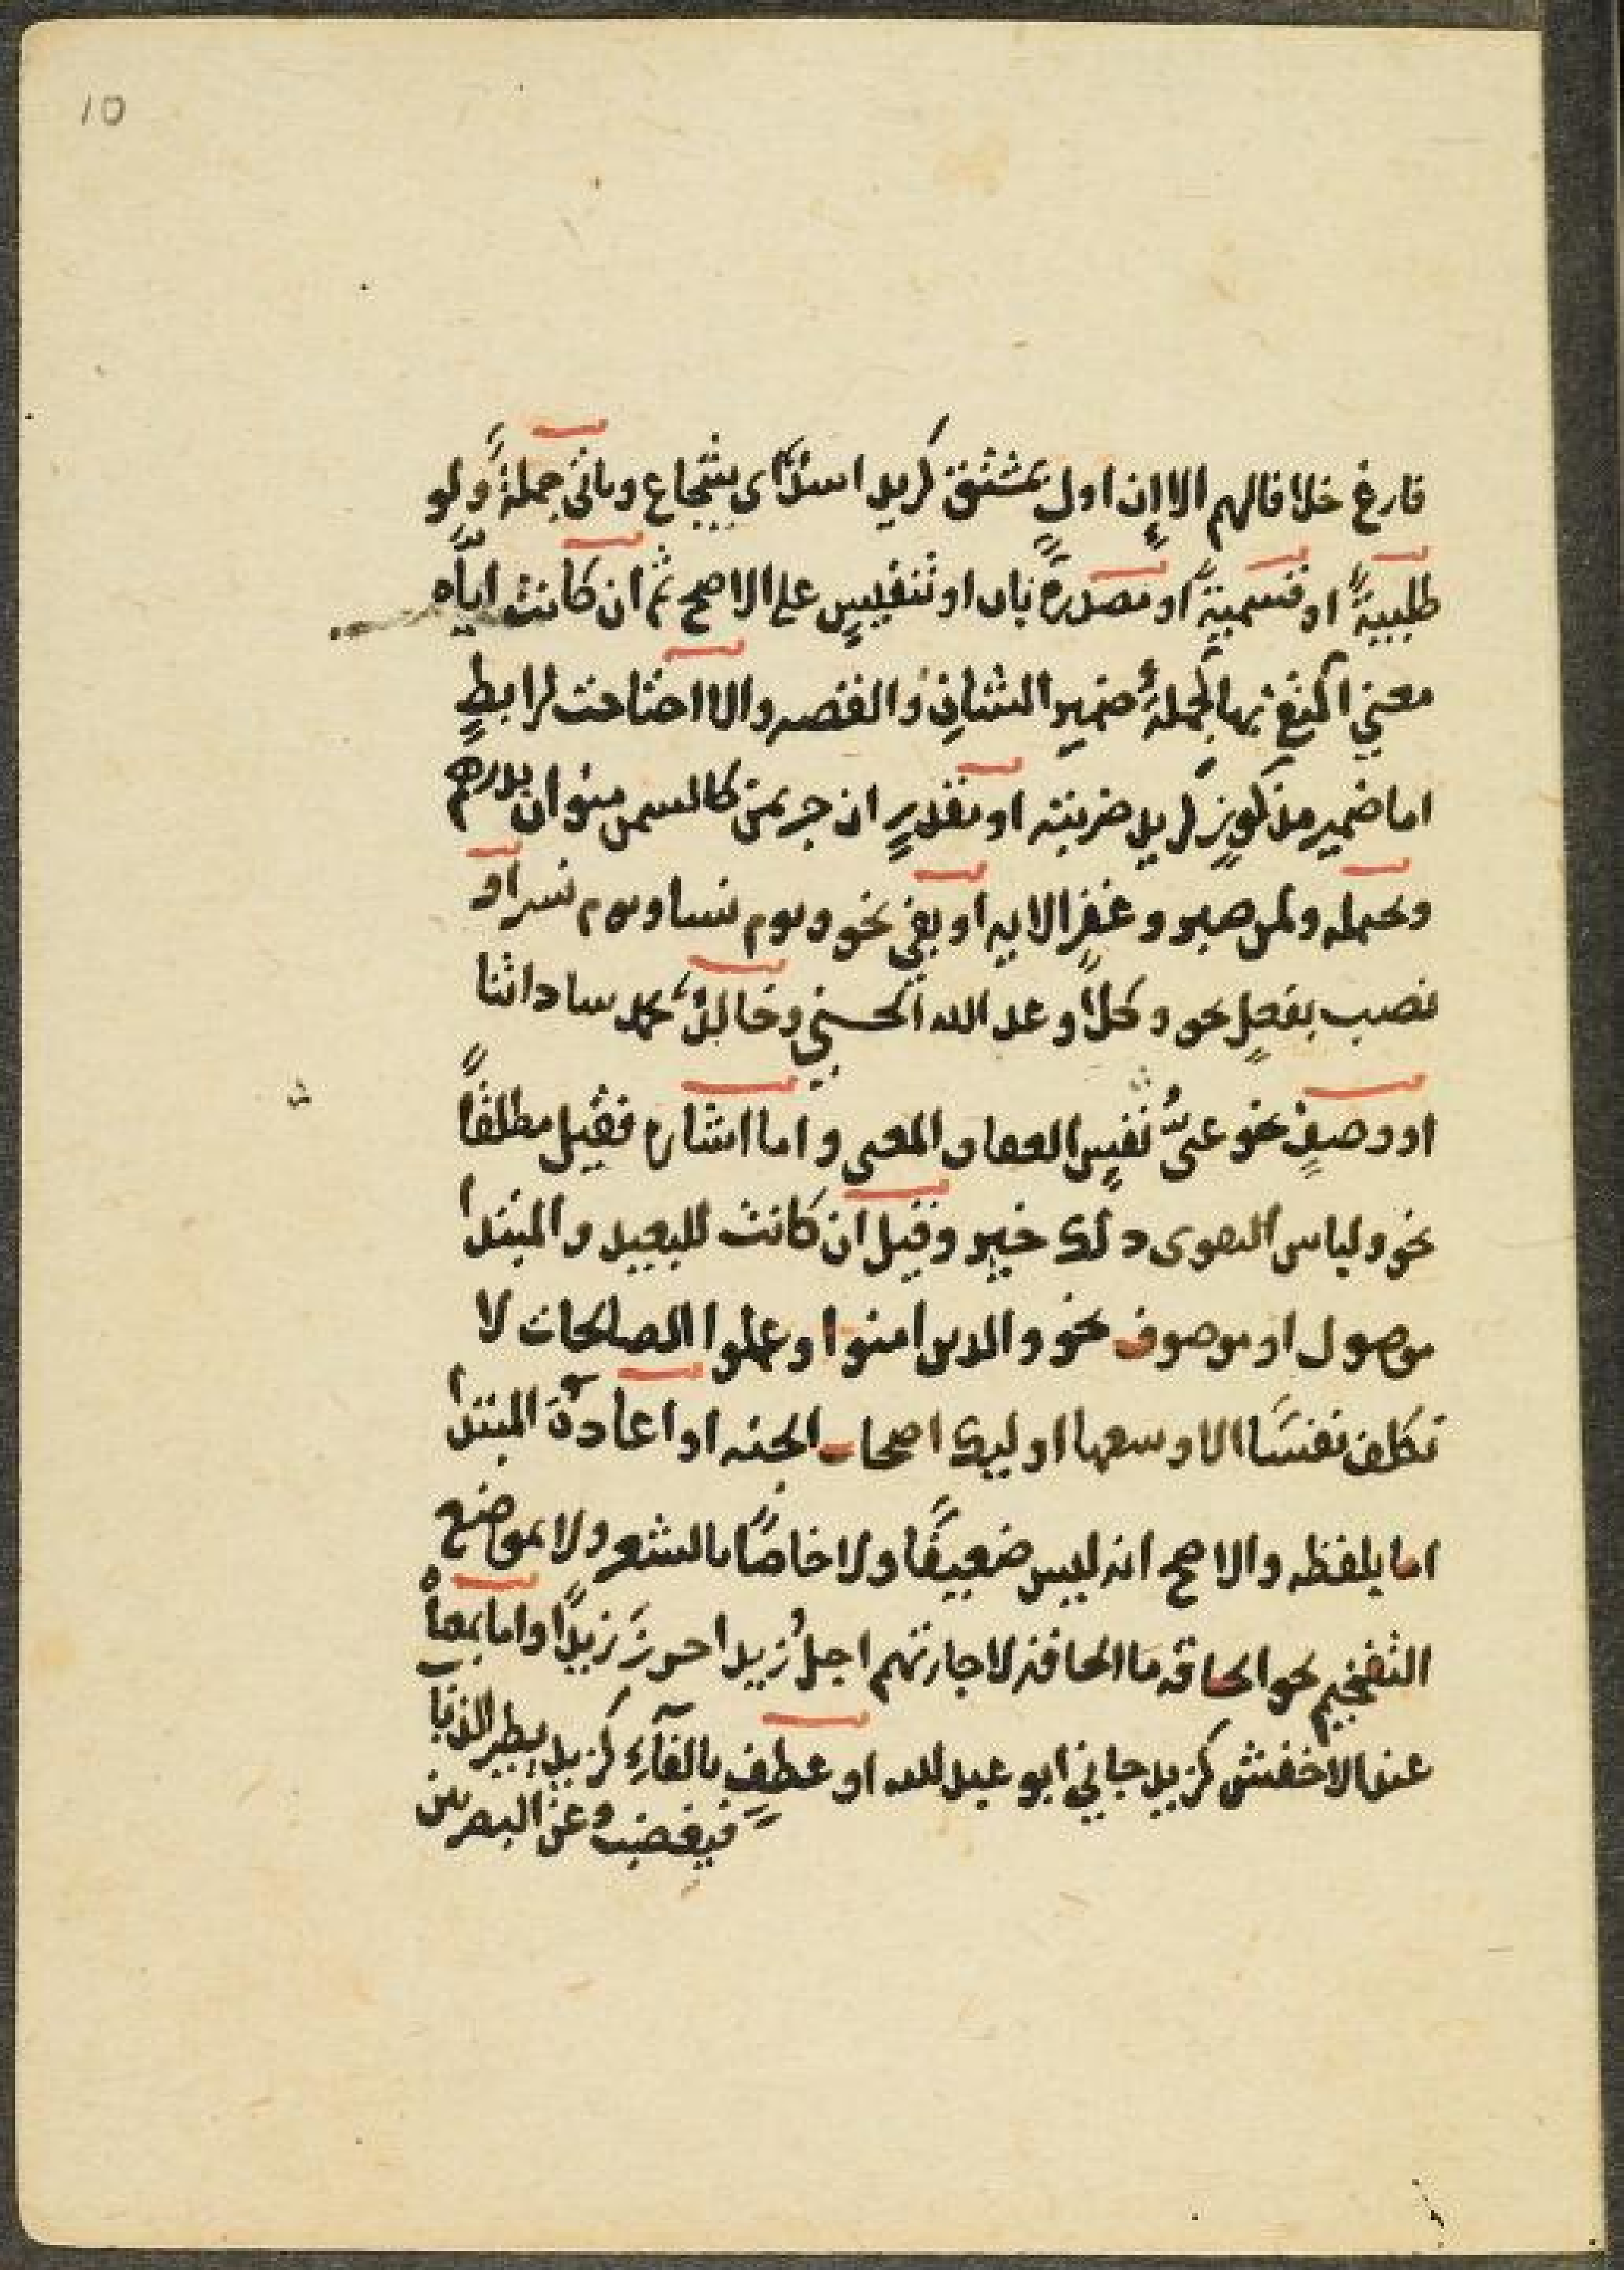 10
فارغ خلافا لهم الا ان اول بمشتق كزيد اسدٌ اى شجاع وياتى جملةً ولو
طلبيةً او قسميةً او مصدرةً بان او تنفيس على الاصح ثم ان كانت اياه
معنى اكتفى بها كجملة ضمير الشان والقصه والا احتاجت لرابطٍ
اما ضمير مذكورٍ كزيد ضربته او مقدرٍ ان جر بمن كالسمن منوان بدرهم
وجمله ولمن صبر وغفر الايه او بفى نحو ويوم نسا ويوم نسر او
نصب بفعلٍ نحو وكلًا وعد الله الحسنى وخالدٌ يحمد ساداتنا
او وصفٍ نحو غنىٌّ نفسٍ العفاف المغنى واما اشاره فقيل مطلقًا
نحو ولباس التقوى ذلك خير وقيل ان كانت للبعيد والمبتدا
موصول او موصوف نحو والذين امنوا وعملوا الصالحات لا
نكلف نفسًا الا وسعها اوليك اصحاب الجنه او اعادة المبتدا
اما بلفظه والاصح انه ليس ضعيفًا ولا خاصًا بالشعر ولا بمواضع
التفخيم نحو الحاقه ما الحاقة لاجازتهم اجل زيد احرز زيدًا واما بمعناه
عند الاخفش كزيد جانى ابو عبد الله او عطف بالفاء كزيد يطير الذباب
فيغضب وعن البصريين